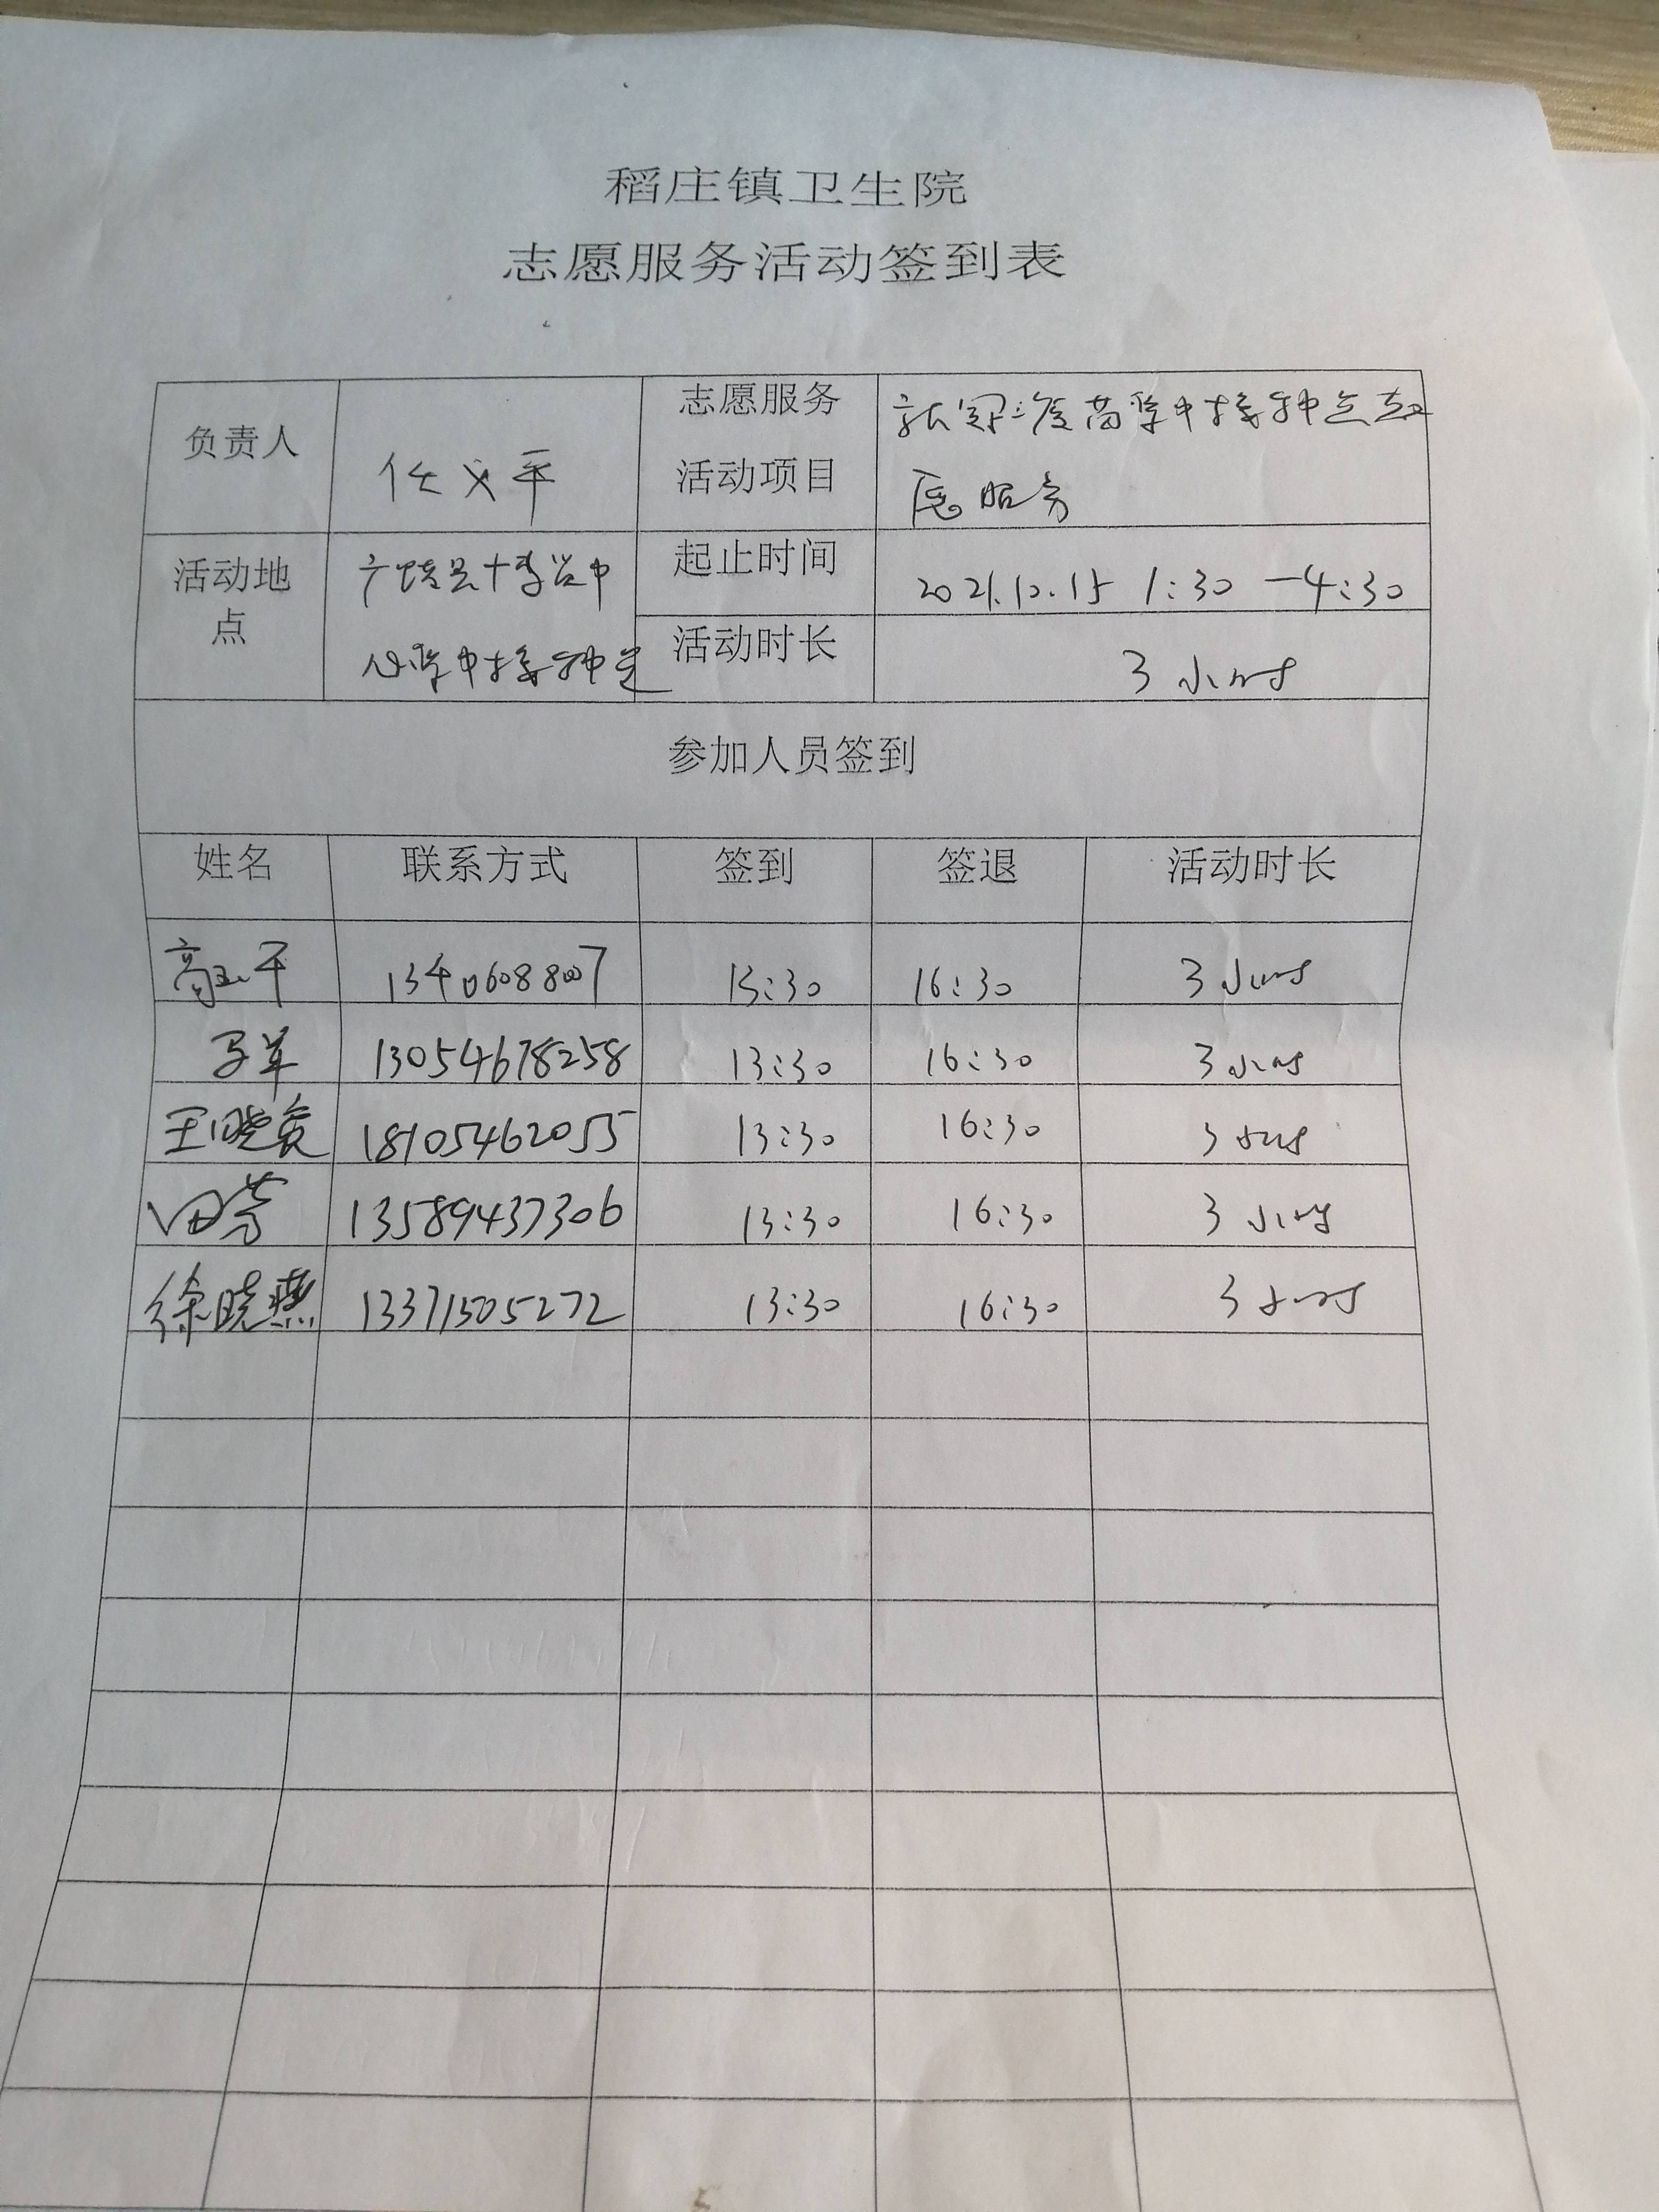 稻庄镇卫生院
志愿服务活动签到表
负责人
任义平
志愿服务
活动项目
新冠疫苗集中接种点志
愿服务
活动地
点
广饶县
集中接种点
起止时间
2021.10.15 1:30-4:30
活动时长
3小时
参加人员签到
姓名 联系方式 签到 签退 活动时长
13406088007 13:30 16:30 3小时
13054678258 13:30 16:30 3小时
王晓 18105462055 13:30 16:30 3小时
田芳 13589437306 13:30 16:30 3小时
徐晓燕 13371505272 13:30 16:30 3小时